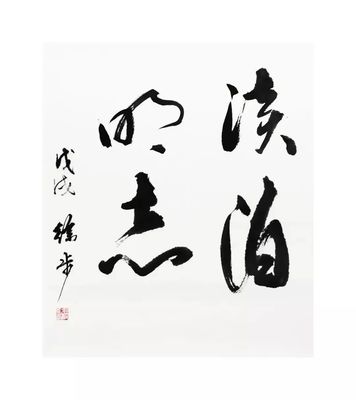 淡泊
明志
戊戌 徐步